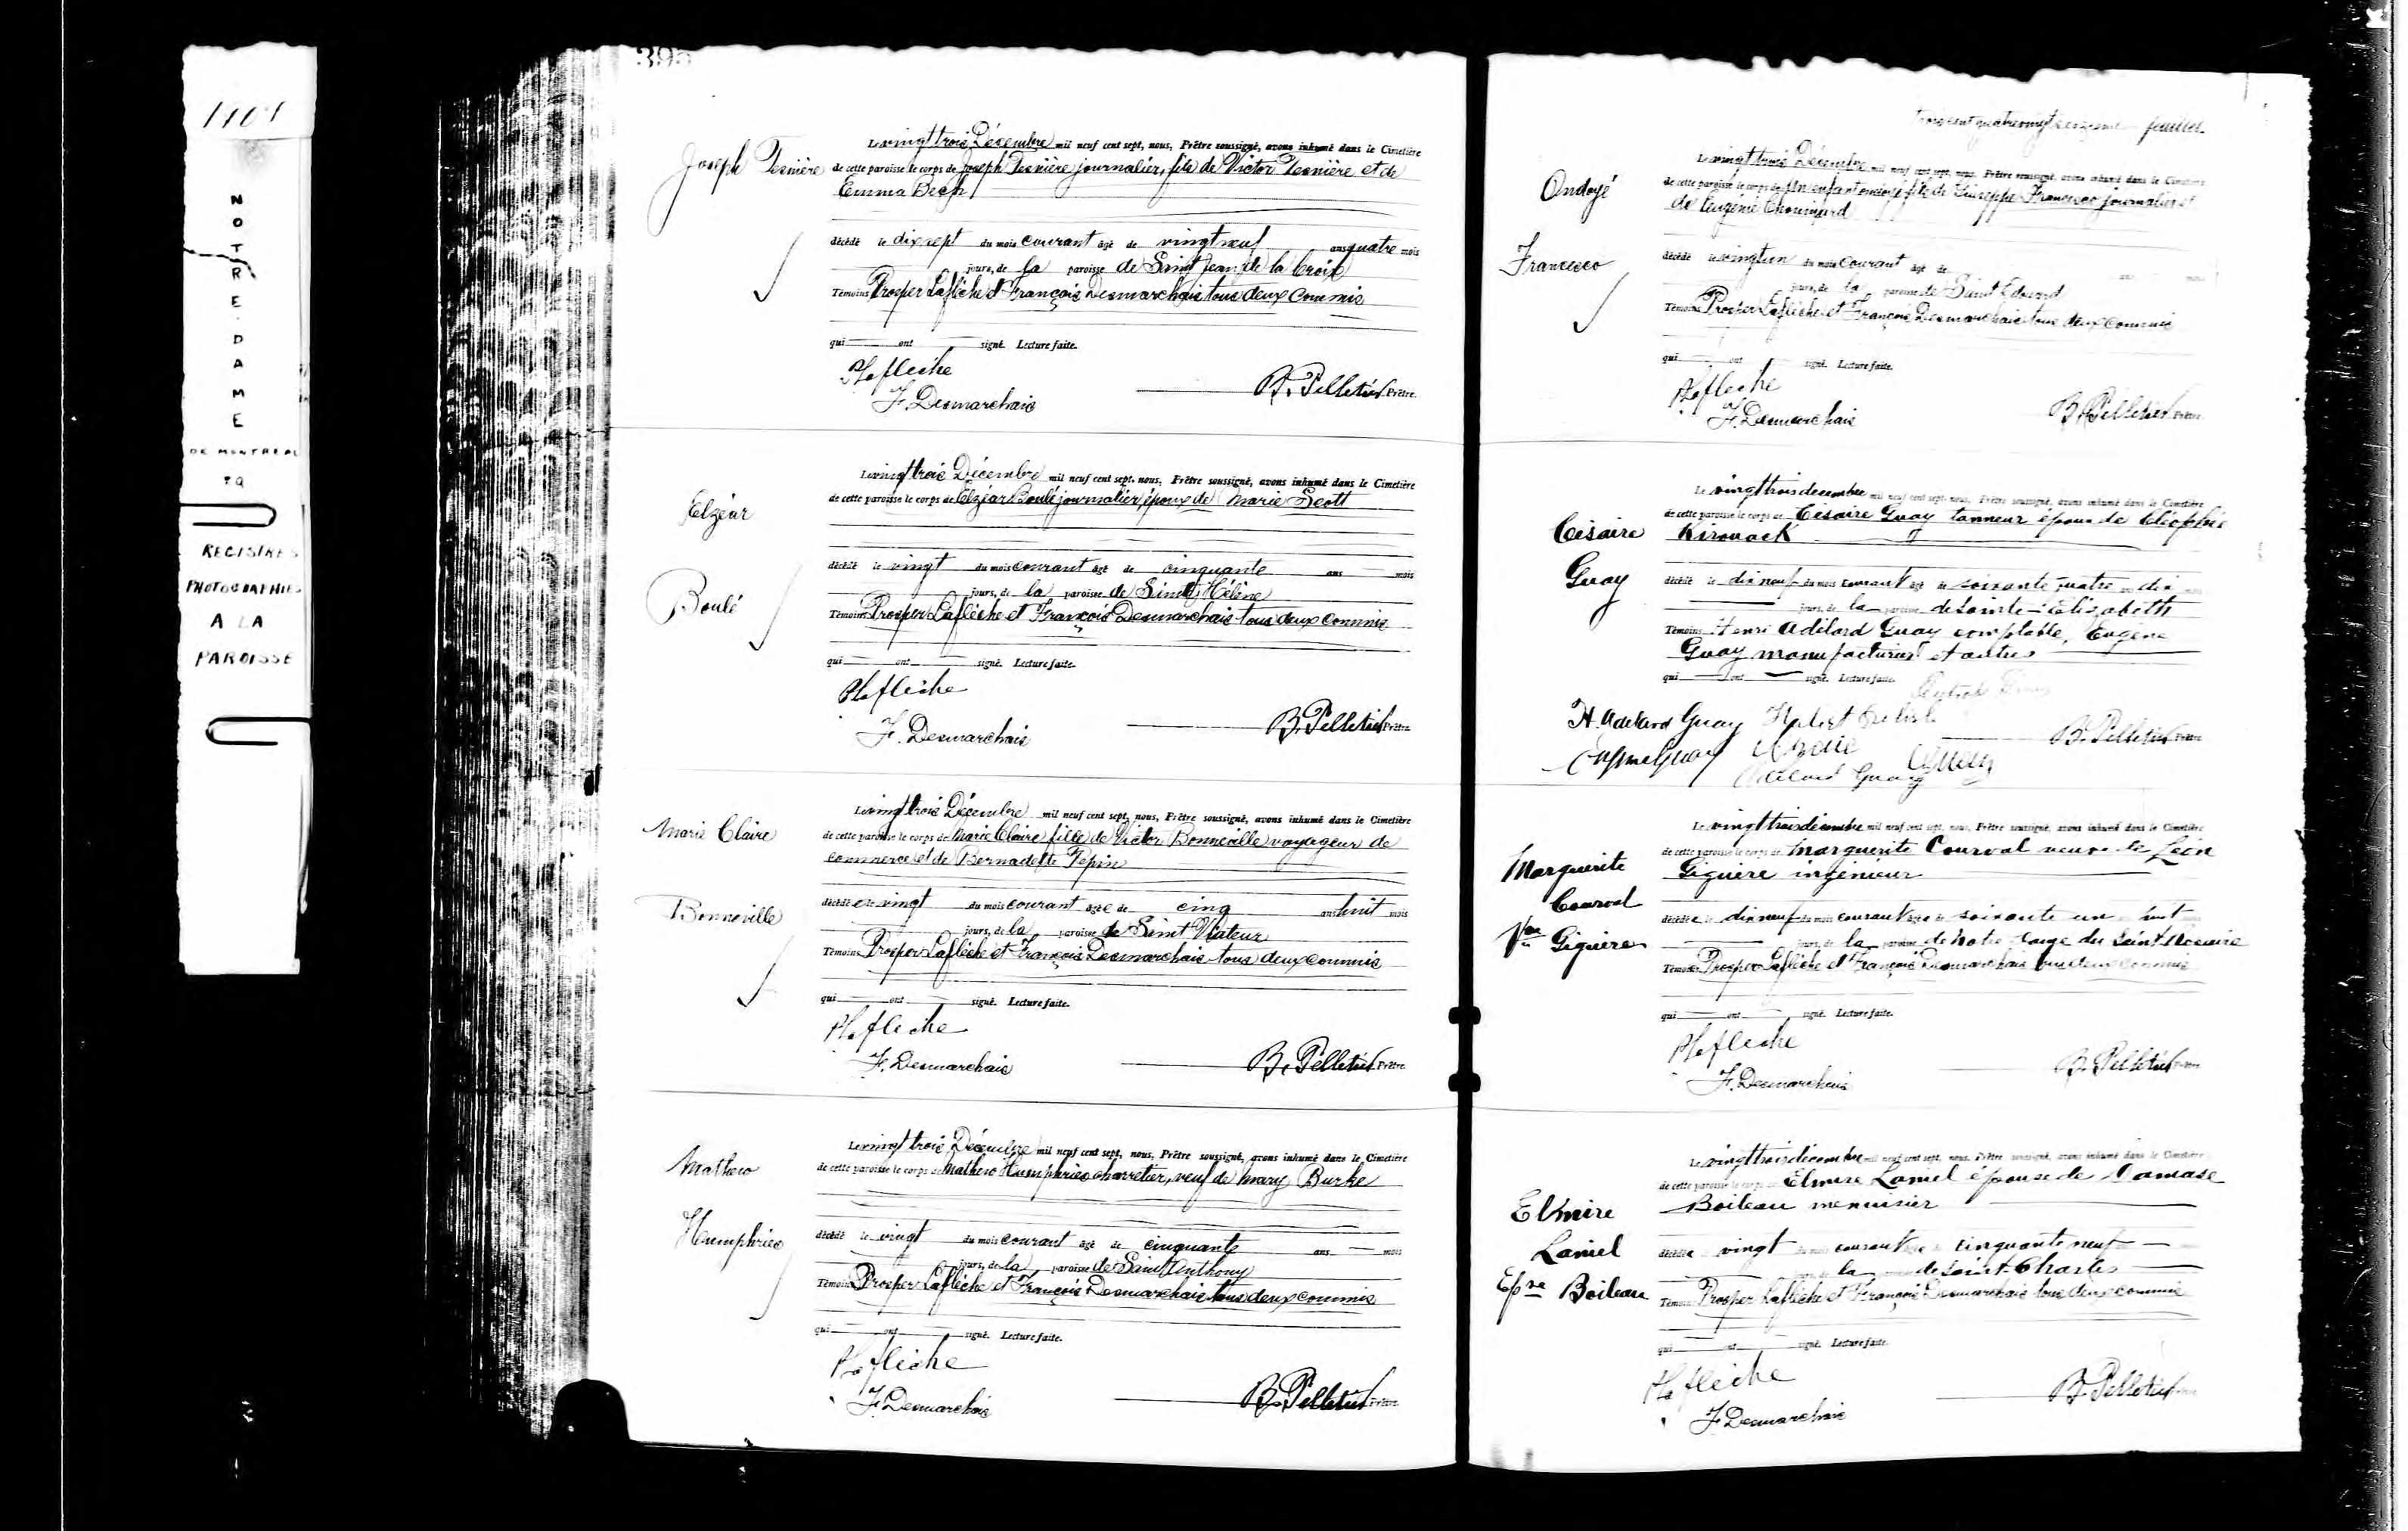 1907
NOTRE-DAME
DE MONTREAL
P Q
REGISTRES
PHOTOGRAPHIES
A LA
PAROISSE
395
Joseph Tesnière
Le vingt trois Décembre mil neuf cent sept, nous, Prêtre soussigné, avons inhumé dans le Cimetière
de cette paroisse le corps de Joseph Tesnière journalier, fils de Victor Tesnière et de
Emma
décédé le dix sept du mois courant âgé de vingt neuf ans quatre mois
jours, de la paroisse de Saint Jean de la Croix
Témoins Prosper Laflèche et François Desmarchais tous deux commis
qui ont signé. Lecture faite.
P Laflèche
F. Desmarchais
B. Pelletier Prêtre.
Elzéar
Boulé
Le vingt trois Décembre mil neuf cent sept, nous, Prêtre soussigné, avons inhumé dans le Cimetière
de cette paroisse le corps de Elzéar Boulé journalier, époux de Marie Scott
décédé le vingt du mois courant âgé de cinquante ans mois
jours, de la paroisse de Sainte Hélène
Témoins Prosper Laflèche et François Desmarchais tous deux commis
qui ont signé. Lecture faite.
P Laflèche
F. Desmarchais
B. Pelletier Prêtre.
Marie Claire
Bonneville
Le vingt trois Décembre mil neuf cent sept, nous, Prêtre soussigné, avons inhumé dans le Cimetière
de cette paroisse le corps de Marie Claire fille de Victor Bonneville voyageur de
commerce et de Bernadette Pépin
décédée le vingt du mois courant âgée de cinq ans huit mois
jours, de la paroisse de Saint Viateur
Témoins Prosper Laflèche et François Desmarchais tous deux commis
qui ont signé. Lecture faite.
P Laflèche
F. Desmarchais
B. Pelletier Prêtre.
Mathew
Humphries
Le vingt trois Décembre mil neuf cent sept, nous, Prêtre soussigné, avons inhumé dans le Cimetière
de cette paroisse le corps de Mathew Humphries charretier, veuf de Mary Burke
décédé le vingt du mois courant âgé de cinquante ans mois
jours, de la paroisse de Saint Anthony
Témoins Prosper Laflèche et François Desmarchais tous deux commis
qui ont signé. Lecture faite.
P Laflèche
F. Desmarchais
B. Pelletier Prêtre.
feuillet
Ondoyé
Francesco
Le vingt trois Décembre mil neuf cent sept, nous, Prêtre soussigné, avons inhumé dans le Cimetière
de cette paroisse le corps de un enfant ondoyé fils de Giuseppe Francesco journalier et
de Eugénie Chouinard
décédé le vingt un du mois courant âgé de ans mois
jours, de la paroisse de Saint Edouard
Témoins Prosper Laflèche et François Desmarchais tous deux commis
qui ont signé. Lecture faite.
P Laflèche
F. Desmarchais
B. Pelletier Prêtre.
Césaire
Guay
Le vingt trois décembre mil neuf cent sept, nous, Prêtre soussigné, avons inhumé dans le Cimetière
de cette paroisse le corps de Césaire Guay tanneur époux de Cléophie
Kirouack
décédé le dix neuf du mois courant âgé de soixante quatre dix
jours, de la paroisse de Sainte-Elisabeth
Témoins Henri Adélard Guay comptable, Eugène
Guay manufacturier et autres
qui ont signé. Lecture faite.
H. Adélard Guay
Eugène Guay
Adélard Guay
B. Pelletier Prêtre.
Marguerite
Courval
Vve Giguère
Le vingt trois décembre mil neuf cent sept, nous, Prêtre soussigné, avons inhumé dans le Cimetière
de cette paroisse le corps de Marguerite Courval veuve de Léon
Giguère ingénieur
décédée le dix neuf du mois courant âgée de soixante un huit
jours, de la paroisse de Notre Dame du Saint Rosaire
Témoins Prosper Laflèche et François Desmarchais tous deux commis
qui ont signé. Lecture faite.
P Laflèche
F. Desmarchais
B. Pelletier Prêtre.
Elmire
Laniel
Epse Boileau
Le vingt trois décembre mil neuf cent sept, nous, Prêtre soussigné, avons inhumé dans le Cimetière
de cette paroisse le corps de Elmire Laniel épouse de Damase
Boileau menuisier
décédée vingt du mois courant âgée de cinquante neuf
la de Saint-Charles
Témoins Prosper Laflèche et François Desmarchais tous deux commis
qui ont signé. Lecture faite.
P Laflèche
F. Desmarchais
B. Pelletier